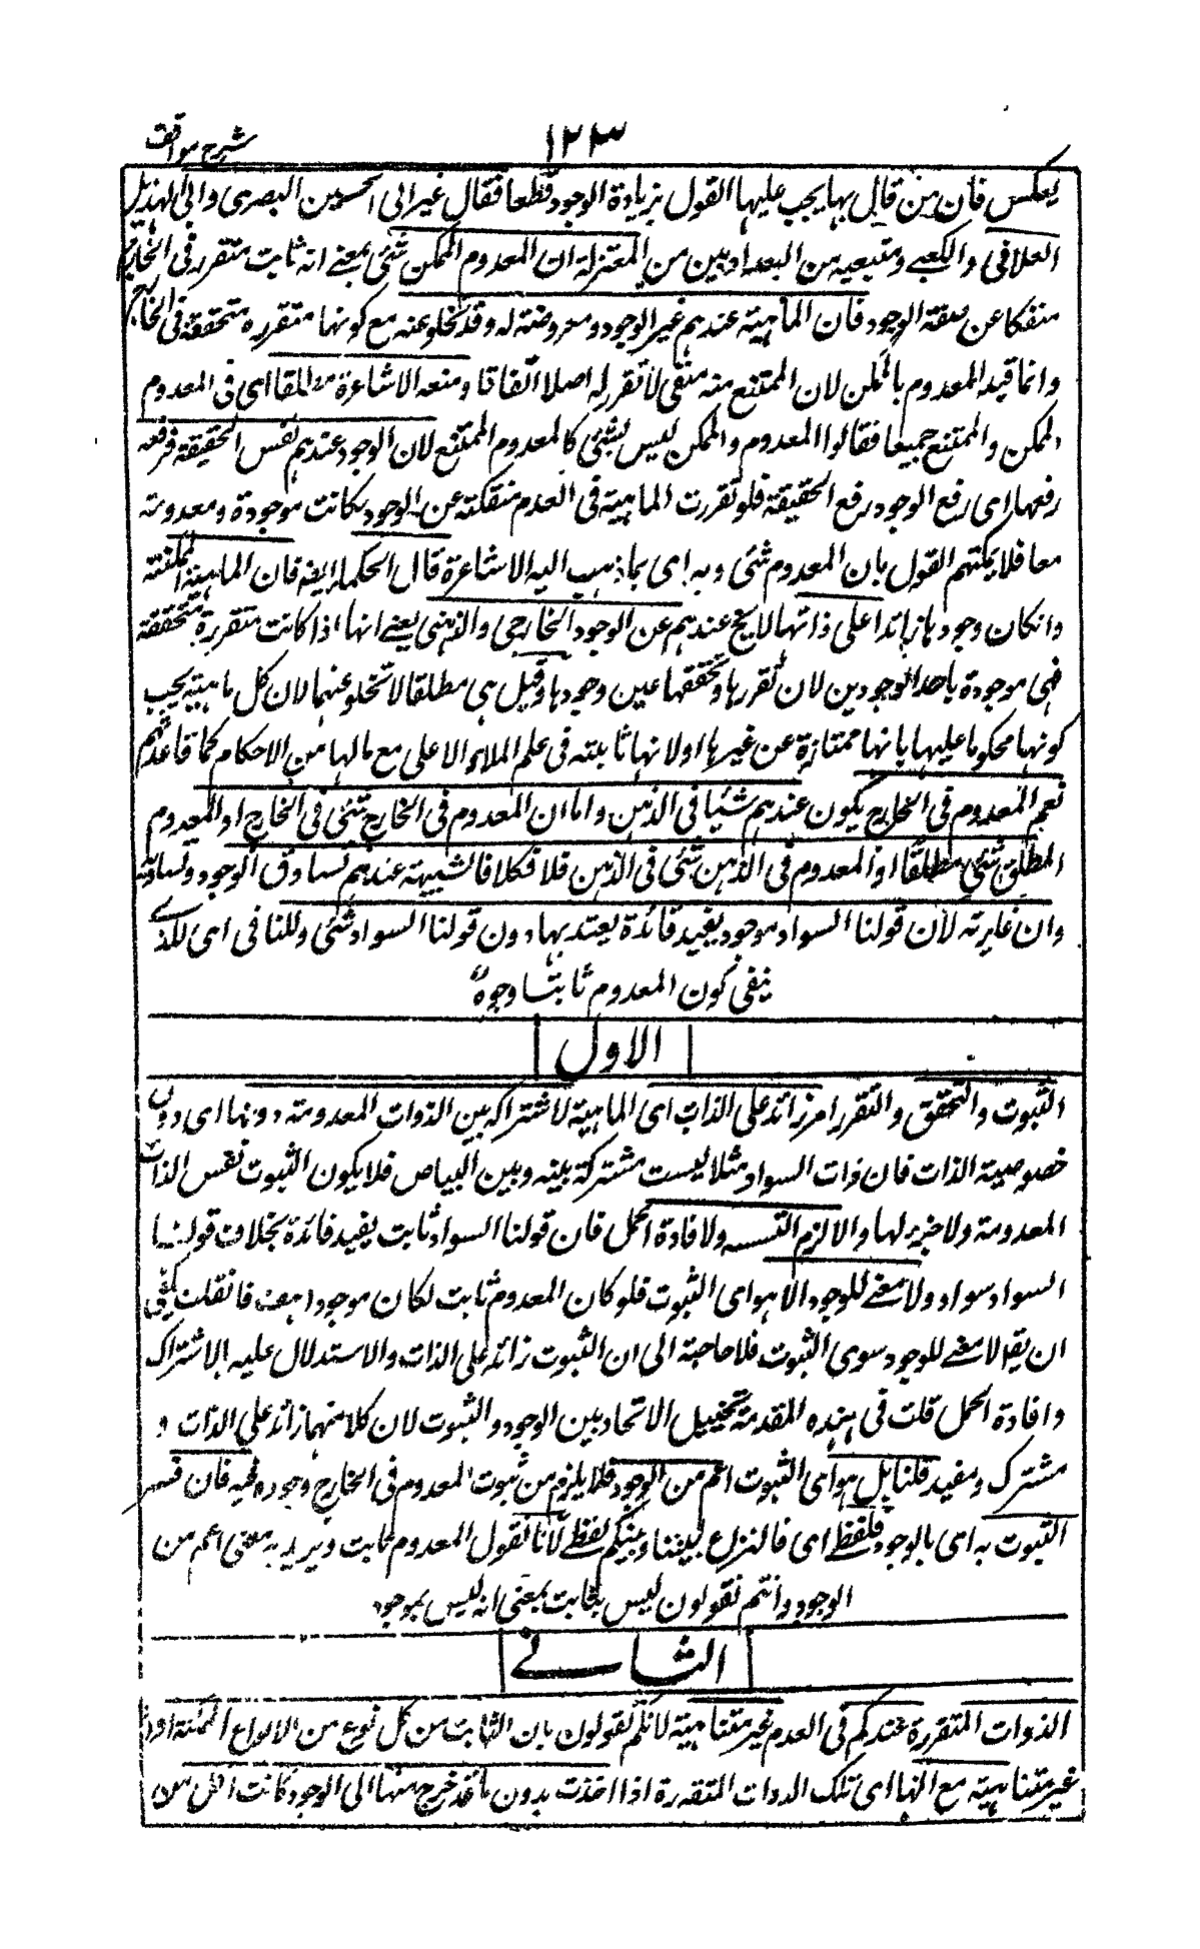 شرح مواقف
١٢٣
يعكس فان من قال بها يجب عليها القول بزيادة الوجود قطعا فقال غير ابى الحسين البصرى وابى الهذيل
العلافى والكعبے ومتبعيه من البغداديين من المعتزلة ان المعدوم الممكن شئى بمعنے انه ثابت متقرر فى الخارج
منفكا عن صفة الوجود فان الماهية عندهم غير الوجود ومعروضة له وقد تخلو عنه مع كونها متقررة متحققة فى الخارج
وانما قيد المعدوم بالممكن لان الممتنع منه منفى لا تقرر له اصلا اتفاقا ومنعه الاشاعرة مطلقا اى فى المعدوم
الممكن والممتنع جميعا فقالوا المعدوم والممكن ليس بشئى كالمعدوم الممتنع لان الوجود عندهم نفس الحقيقة فرفعه
رفعها اى رفع الوجود رفع الحقيقة فلو تقررت الماهية فى العدم منفكة عن الوجود لكانت موجودة ومعدومة
معا فلا يمكنهم القول بان المعدوم شئى وبه اى بما ذهب اليه الاشاعرة قال الحكماء ايضه فان الماهية الممكنة
وانكان وجودها زائدا على ذاتها لا يخ عندهم عن الوجود الخارجى والذهنى يعنے انها اذا كانت متقررة متحققة
فهى موجودة باحد الوجودين لان تقررها وتحققها عين وجودها وقيل هى مطلقا لا تخلو عنهما لان كل ماهية يجب
كونها محكوما عليها بانها ممتازة عن غيرها اولا نها ثابتة فى علم الملاء الاعلى مع مالها من الاحكام كما قاعدتهم
نعم المعدوم فى الخارج يكون عندهم شيئا فى الذهن واما ان المعدوم فى الخارج شئى فى الخارج او المعدوم
المطلق شئى مطلقا او المعدوم فى الذهن شئى فى الذهن فلا فكلا فالشيئية عندهم تساوق الوجود وتساوقه
وان غايرته لان قولنا السواد موجود يفيد فائدة يعتد بها دون قولنا السواد شئى وللنافى اى للذے
ينفى كون المعدوم ثابتا وجوه
الاول
الثبوت والتحقق والتقرر امر زائد على الذات اى الماهية لاشتراكه بين الذوات المعدومة دونها اى دون
خصوصية الذات فان ذات السواد مثلا ليست مشتركة بينه وبين البياض فلا يكون الثبوت نفس الذات
المعدومة ولا جزء لها والا لزم التسسه ولافادة الحمل فان قولنا السواد ثابت يفيد فائدة بخلاف قولنا
السواد سواد ولا معنے للوجود الا هو اى الثبوت فلو كان المعدوم ثابت لكان موجودا هف فانقلت يكفى
ان يقه لا معنے للوجود سوى الثبوت فلا حاجة الى ان الثبوت زائد على الذات والاستدلال عليه بالاشتراك
وافادة الحمل قلت فى هنده المقدمة تخييل الاتحاد بين الوجود والثبوت لان كلا منهما زائد على الذات و
مشترك ومفيد قلنا بل هو اى الثبوت اعم من الوجود فلا يلزم من ثبوت المعدوم فى الخارج وجوده فيه فان فسر
الثبوت به اى بالوجود فلفظے اى فالنزاع بيننا وبينكم لفظے لانا نقول المعدوم ثابت ونريد به معنى اعم من
الوجود وانتم تقولون ليس بثابت بمعنى انه ليس بموجود
الثانے
الذوات المتقررة عندكم فى العدم غير متناهية لانكم تقولون بان الثابت من كل نوع من الانواع الممكنة افراد
غير متناهية مع انها اى تلك الذوات المتقررة اذا اخذت بدون ما قد خرج منها الى الوجود كانت اقل من